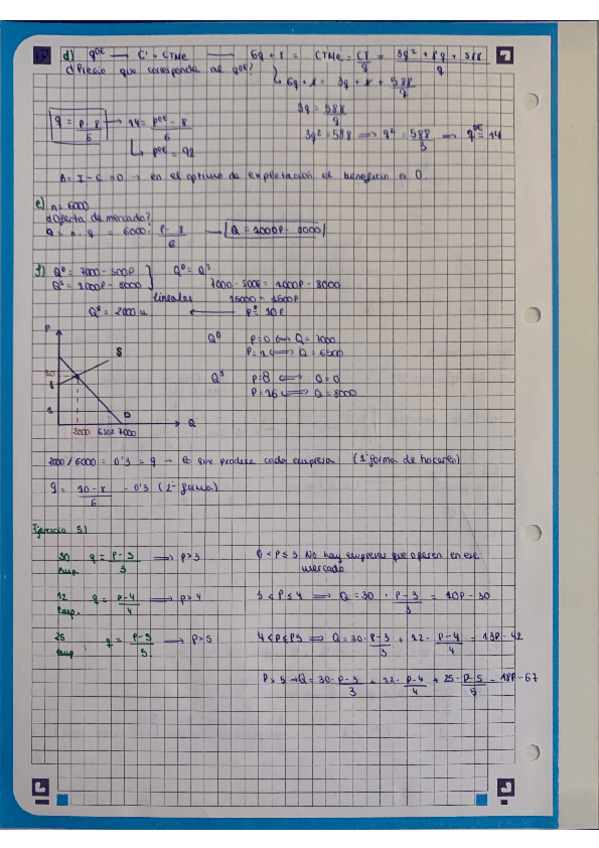 d) q^OE → C' = CTMe → 6q + 8 = CTMe = CT/q = 3q² + 8q + 588 / q
¿Precio que corresponde al q^OE? 6q + 8 = 3q + 8 + 588/q
3q = 588/q
q = P - 8 / 6 → 14 = P^OE - 8 / 6
3q² = 588 ⟹ q² = 588/3 ⟹ q^OE = 14
↳ P^OE = 92
B = I - C = 0 → en el óptimo de explotación el beneficio a 0.
e) n = 6000
¿Oferta de mercado?
Q = n · q = 6000 · P - 8 / 6 → Q = 1000P - 8000
f) Q^D = 7000 - 500P Q^D = Q^S
Q^S = 1000P - 8000 7000 - 500P = 1000P - 8000
lineales 15000 = 1500P
Q* = 2000 u ← P* = 10€
P
Q^D P=0 ⟺ Q = 7000
P=1 ⟺ Q = 6500
S
Q^S P=8 ⟺ Q=0
10
P=16 ⟺ Q=8000
8
1
D
Q
2000 6500 7000
2000/6000 = 0'3 = q → lo que produce cada empresa (1ª forma de hacerlo)
q = 10 - 8 / 6 = 0'3 (2ª forma)
Ejercicio 5)
30 emp. q = P-3 / 3 ⟹ P>3 0 < P ≤ 3 No hay empresas que operen en ese mercado
12 emp. q = P-4 / 4 ⟹ P>4 3 < P ≤ 4 ⟹ Q = 30 · P-3 / 3 = 10P - 30
25 emp. q = P-5 / 5 ⟹ P>5 4 < P ≤ 5 ⟹ Q = 30 · P-3 / 3 + 12 · P-4 / 4 = 13P - 42
P > 5 → Q = 30 · P-3 / 3 + 12 · P-4 / 4 + 25 · P-5 / 5 = 18P - 67